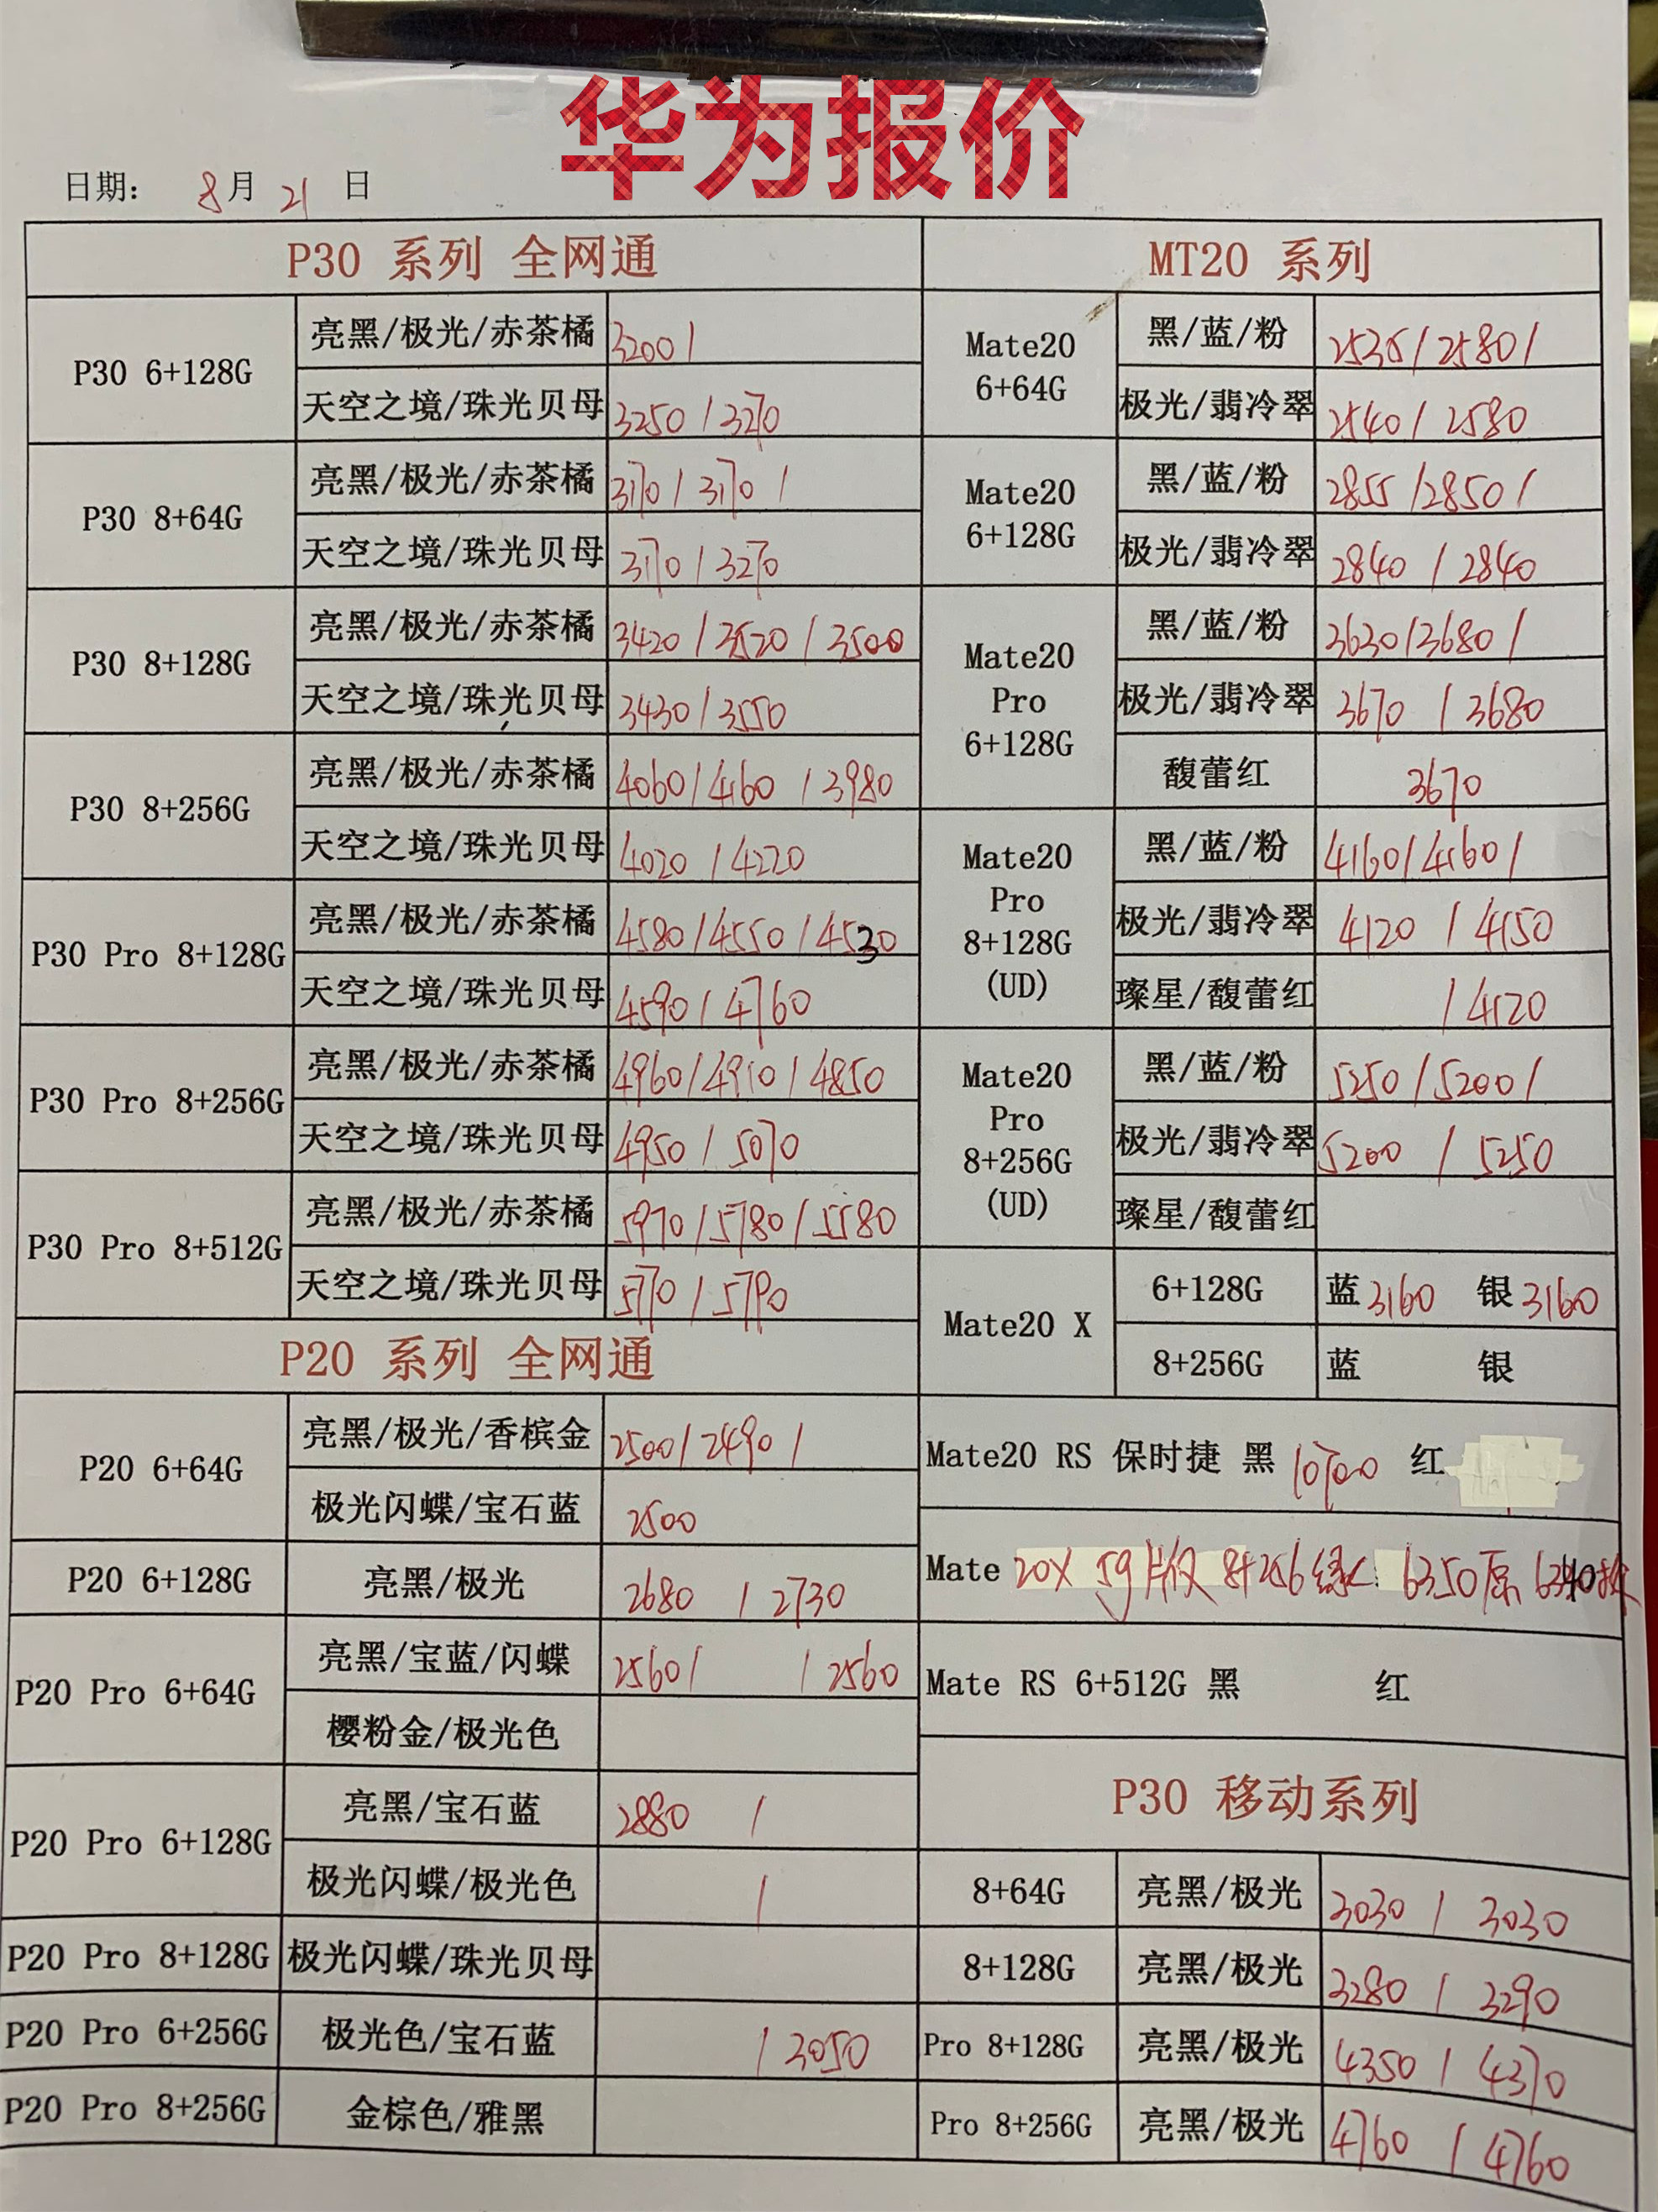 华为报价
日期: 8月 21 日
P30 系列 全网通
P30 6+128G
亮黑/极光/赤茶橘 3200/
天空之境/珠光贝母 3250/3270
P30 8+64G
亮黑/极光/赤茶橘 3170/3170/
天空之境/珠光贝母 3170/3270
P30 8+128G
亮黑/极光/赤茶橘 3420/3520/3500
天空之境/珠光贝母 3430/3550
P30 8+256G
亮黑/极光/赤茶橘 4060/4160/3980
天空之境/珠光贝母 4020/4220
P30 Pro 8+128G
亮黑/极光/赤茶橘 4580/4550/4530
天空之境/珠光贝母 4590/4760
P30 Pro 8+256G
亮黑/极光/赤茶橘 4960/4910/4850
天空之境/珠光贝母 4950/5070
P30 Pro 8+512G
亮黑/极光/赤茶橘 5970/5780/5580
天空之境/珠光贝母 5770/5790
P20 系列 全网通
P20 6+64G
亮黑/极光/香槟金 2500/2490/
极光闪蝶/宝石蓝 2500
P20 6+128G 亮黑/极光 2680 / 2730
P20 Pro 6+64G
亮黑/宝蓝/闪蝶 2560/ / 2560
樱粉金/极光色
P20 Pro 6+128G
亮黑/宝石蓝 2880 /
极光闪蝶/极光色 /
P20 Pro 8+128G 极光闪蝶/珠光贝母
P20 Pro 6+256G 极光色/宝石蓝 / 3050
P20 Pro 8+256G 金棕色/雅黑
MT20 系列
Mate20
6+64G
黑/蓝/粉 2535/2580/
极光/翡冷翠 2540/2580
Mate20
6+128G
黑/蓝/粉 2855/2850/
极光/翡冷翠 2840/2840
Mate20
Pro
6+128G
黑/蓝/粉 3630/3680/
极光/翡冷翠 3670/3680
馥蕾红 3670
Mate20
Pro
8+128G
(UD)
黑/蓝/粉 4160/4160/
极光/翡冷翠 4120/4150
璨星/馥蕾红 /4120
Mate20
Pro
8+256G
(UD)
黑/蓝/粉 5250/5200/
极光/翡冷翠 5200/5250
璨星/馥蕾红
Mate20 X
6+128G 蓝 3160 银 3160
8+256G 蓝 银
Mate20 RS 保时捷 黑 10700 红
Mate 20X 5g 版 8+256 绿 6350原
Mate RS 6+512G 黑 红
P30 移动系列
8+64G 亮黑/极光 3030 / 3030
8+128G 亮黑/极光 3280 / 3290
Pro 8+128G 亮黑/极光 4350 / 4370
Pro 8+256G 亮黑/极光 4760 / 4760